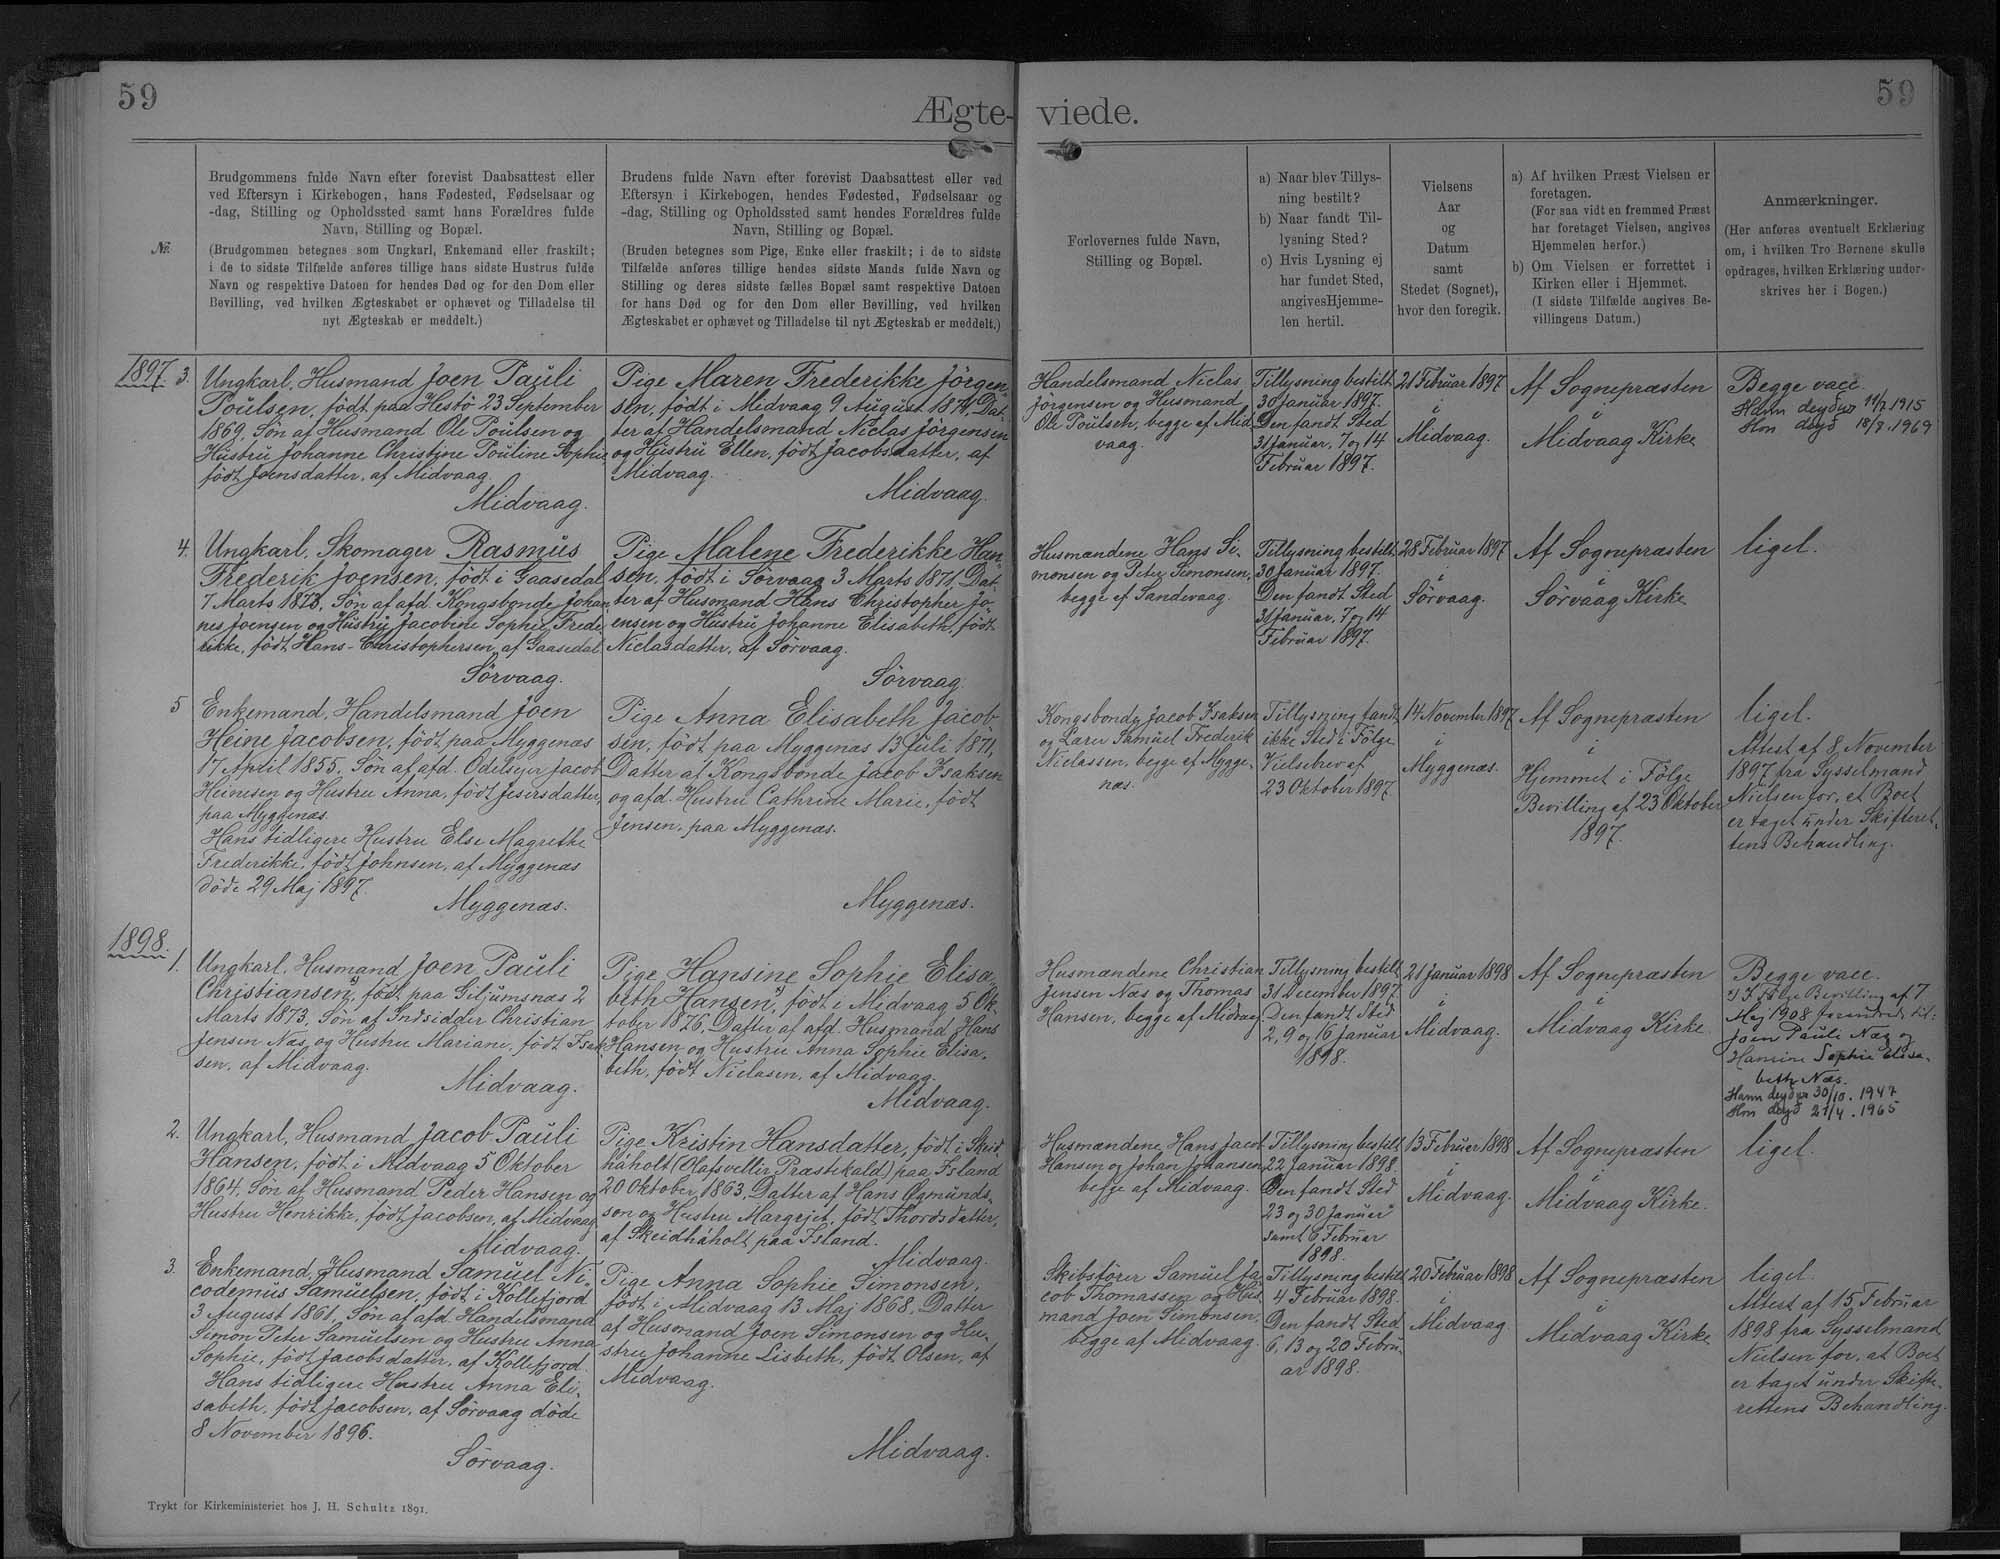 59
59
Ægte-
viede.
№.
Brudgommens fulde Navn efter forevist Daabsattest eller
ved Eftersyn i Kirkebogen, hans Fødested, Fødselsaar og
-dag, Stilling og Opholdssted samt hans Forældres fulde
Navn, Stilling og Bopæl.
(Brudgommen betegnes som Ungkarl, Enkemand eller fraskilt;
i de to sidste Tilfælde anføres tillige hans sidste Hustrus fulde
Navn og respektive Datoen for hendes Død og for den Dom eller
Bevilling, ved hvilken Ægteskabet er ophævet og Tilladelse til
nyt Ægteskab er meddelt.)
Brudens fulde Navn efter forevist Daabsattest eller ved
Eftersyn i Kirkebogen, hendes Fødested, Fødselsaar og
-dag, Stilling og Opholdssted samt hendes Forældres fulde
Navn, Stilling og Bopæl.
(Bruden betegnes som Pige, Enke eller fraskilt; i de to sidste
Tilfælde anføres tillige hendes sidste Mands fulde Navn og
Stilling og deres sidste fælles Bopæl samt respektive Datoen
for hans Død og for den Dom eller Bevilling, ved hvilken
Ægteskabet er ophævet og Tilladelse til nyt Ægteskab er meddelt.)
Forlovernes fulde Navn,
Stilling og Bopæl.
a) Naar blev Tillys-
ning bestilt?
b) Naar fandt Til-
lysning Sted?
c) Hvis Lysning ej
har fundet Sted,
angives Hjemme-
len hertil.
Vielsens
Aar
og
Datum
samt
Stedet (Sognet),
hvor den foregik.
a) Af hvilken Præst Vielsen er
foretagen.
(For saa vidt en fremmed Præst
har foretaget Vielsen, angives
Hjemmelen herfor.)
b) Om Vielsen er forrettet i
Kirken eller i Hjemmet.
(I sidste Tilfælde angives Be-
villingens Datum.)
Anmærkninger.
(Her anføres eventuelt Erklæring
om, i hvilken Tro Børnene skulle
opdrages, hvilken Erklæring under-
skrives her i Bogen.)
1897. 3.
Ungkarl, Husmand Joen Pauli
Poulsen, født paa Hestö 23 September
1869. Søn af Husmand Ole Poulsen og
Hustru Johanne Christine Pouline Sophie,
født Joensdatter, af Midvaag.
Midvaag.
Pige Maren Frederikke Jörgen-
sen, født i Midvaag 9 August 1871, Dat-
ter af Handelsmand Niclas Jörgensen
og Hustru Ellen, født Jacobsdatter, af
Midvaag.
Midvaag.
Handelsmand Niclas
Jörgensen og Husmand
Ole Poulsen, begge af Mid-
vaag.
Tillysning bestilt
30 Januar 1897.
Den fandt Sted
31 Januar, 7 og 14
Februar 1897.
21 Februar 1897
i
Midvaag.
Af Sognepræsten
i
Midvaag Kirke
Begge vacc.
Hann deyður 14/7 1915
Hon deyð 18/8. 1969
4.
Ungkarl, Skomager Rasmus
Frederik Joensen, født i Gaasedal
7 Marts 1873, Søn af afd. Kongsbonde Johan-
nes Joensen og Hustru Jacobine Sophie Frede-
rikke, født Hans-Christophersen, af Gaasedal
Sörvaag.
Pige Malene Frederikke Han-
sen, født i Sörvaag 3 Marts 1871, Dat-
ter af Husmand Hans Christopher Jo-
ensen og Hustru Johanne Elisabeth, født
Niclasdatter, af Sörvaag.
Sörvaag.
Husmændene Hans Si-
monsen og Peter Simonsen,
begge af Sandevaag.
Tillysning bestilt
30 Januar 1897.
Den fandt Sted
31 Januar, 7 og 14
Februar 1897.
28 Februar 1897
i
Sörvaag.
Af Sognepræsten
i
Sörvaag Kirke
ligel.
5
Enkemand, Handelsmand Joen
Heine Jacobsen, født paa Myggenæs
17 April 1855, Søn af afd. Odelsejer Jacob
Heinesen og Hustru Anna, født Jesersdatter,
paa Myggenæs.
Hans tidligere Hustru Else Magrethe
Frederikke, født Johnsen, af Myggenæs
döde 29 Maj 1897.
Myggenæs.
Pige Anna Elisabeth Jacob-
sen, født paa Myggenæs 13 Juli 1871,
Datter af Kongsbonde Jacob Isaksen
og afd. Hustru Cathrine Marie, født
Jensen, paa Myggenæs.
Myggenæs.
Kongsbonde Jacob Isaksen
og Lærer Samuel Frederik
Niclassen, begge af Mygge-
næs.
Tillysning fandt
ikke Sted i Fölge
Vielsebrev af
23 Oktober 1897.
14 November 1897
i
Myggenæs.
Af Sognepræsten
i
Hjemmet i Fölge
Bevilling af 23 Oktober
1897.
ligel.
Attest af 8 November
1897 fra Sysselmand
Nielsen for, at Boet
er taget under Skifteret-
tens Behandling.
1898.
1.
Ungkarl, Husmand Joen Pauli
Christiansen, født paa Giljumsnæs 2
Marts 1873, Søn af Indsidder Christian
Jensen Næs og Hustru Mariane, født Isak-
sen, af Midvaag.
Midvaag.
Pige Hansine Sophie Elisa-
beth Hansen, født i Midvaag 5 Ok-
tober 1876, Datter af afd. Husmand Hans
Hansen og Hustru Anna Sophie Elisa-
beth, født Niclasen, af Midvaag.
Midvaag.
Husmændene Christian
Jensen Næs og Thomas
Hansen, begge af Midvaag.
Tillysning bestilt
31 December 1897.
Den fandt Sted
2, 9 og 16 Januar
1898.
21 Januar 1898
i
Midvaag.
Af Sognepræsten
i
Midvaag Kirke.
Begge vacc.
I Fölge Bevilling af 7
Maj 1908 forandret til:
Joen Pauli Næs og
Hansine Sophie Elisa-
beth Næs.
Hann deyður 30/10. 1947
Hon deyð 21/4. 1965
2.
Ungkarl, Husmand Jacob Pauli
Hansen, født i Midvaag 5 Oktober
1864, Søn af Husmand Peder Hansen og
Hustru Henrikke, født Jacobsen, af Midvaag
Midvaag.
Pige Kristin Hansdatter, født i Skeid-
háholt (Olafsvellir Præstekald) paa Island
20 Oktober 1863, Datter af Hans Ogmunds-
son og Hustru Margrjet, født Thordsdatter,
af Skeidháholt paa Island.
Midvaag.
Husmændene Hans Jacob
Hansen og Johan Johansen
begge af Midvaag.
Tillysning bestilt
22 Januar 1898.
Den fandt Sted
23 og 30 Januar
samt 6 Februar
1898.
13 Februar 1898
i
Midvaag.
Af Sognepræsten
i
Midvaag Kirke.
ligel.
3.
Enkemand, Husmand Samuel Ni-
codemus Samuelsen, født i Kollefjord
3 August 1861, Søn af afd. Handelsmand
Simon Peter Samuelsen og Hustru Anna
Sophie, født Jacobsdatter, af Kollefjord.
Hans tidligere Hustru Anna Eli-
sabeth, født Jacobsen, af Sörvaag döde
8 November 1896.
Sörvaag.
Pige Anna Sophie Simonsen,
født i Midvaag 13 Maj 1868, Datter
af Husmand Joen Simonsen og Hu-
stru Johanne Lisbeth, født Olsen, af
Midvaag.
Midvaag.
Skibsförer Samuel Ja-
cob Thomassen og Hus-
mand Joen Simonsen,
begge af Midvaag.
Tillysning bestilt
4 Februar 1898.
Den fandt Sted
6, 13 og 20 Febru-
ar 1898.
20 Februar 1898
i
Midvaag
Af Sognepræsten
i
Midvaag Kirke
ligel.
Attest af 15 Februar
1898 fra Sysselmand
Nielsen for, at Boet
er taget under Skifte-
rettens Behandling.
Trykt for Kirkeministeriet hos J. H. Schultz 1891.